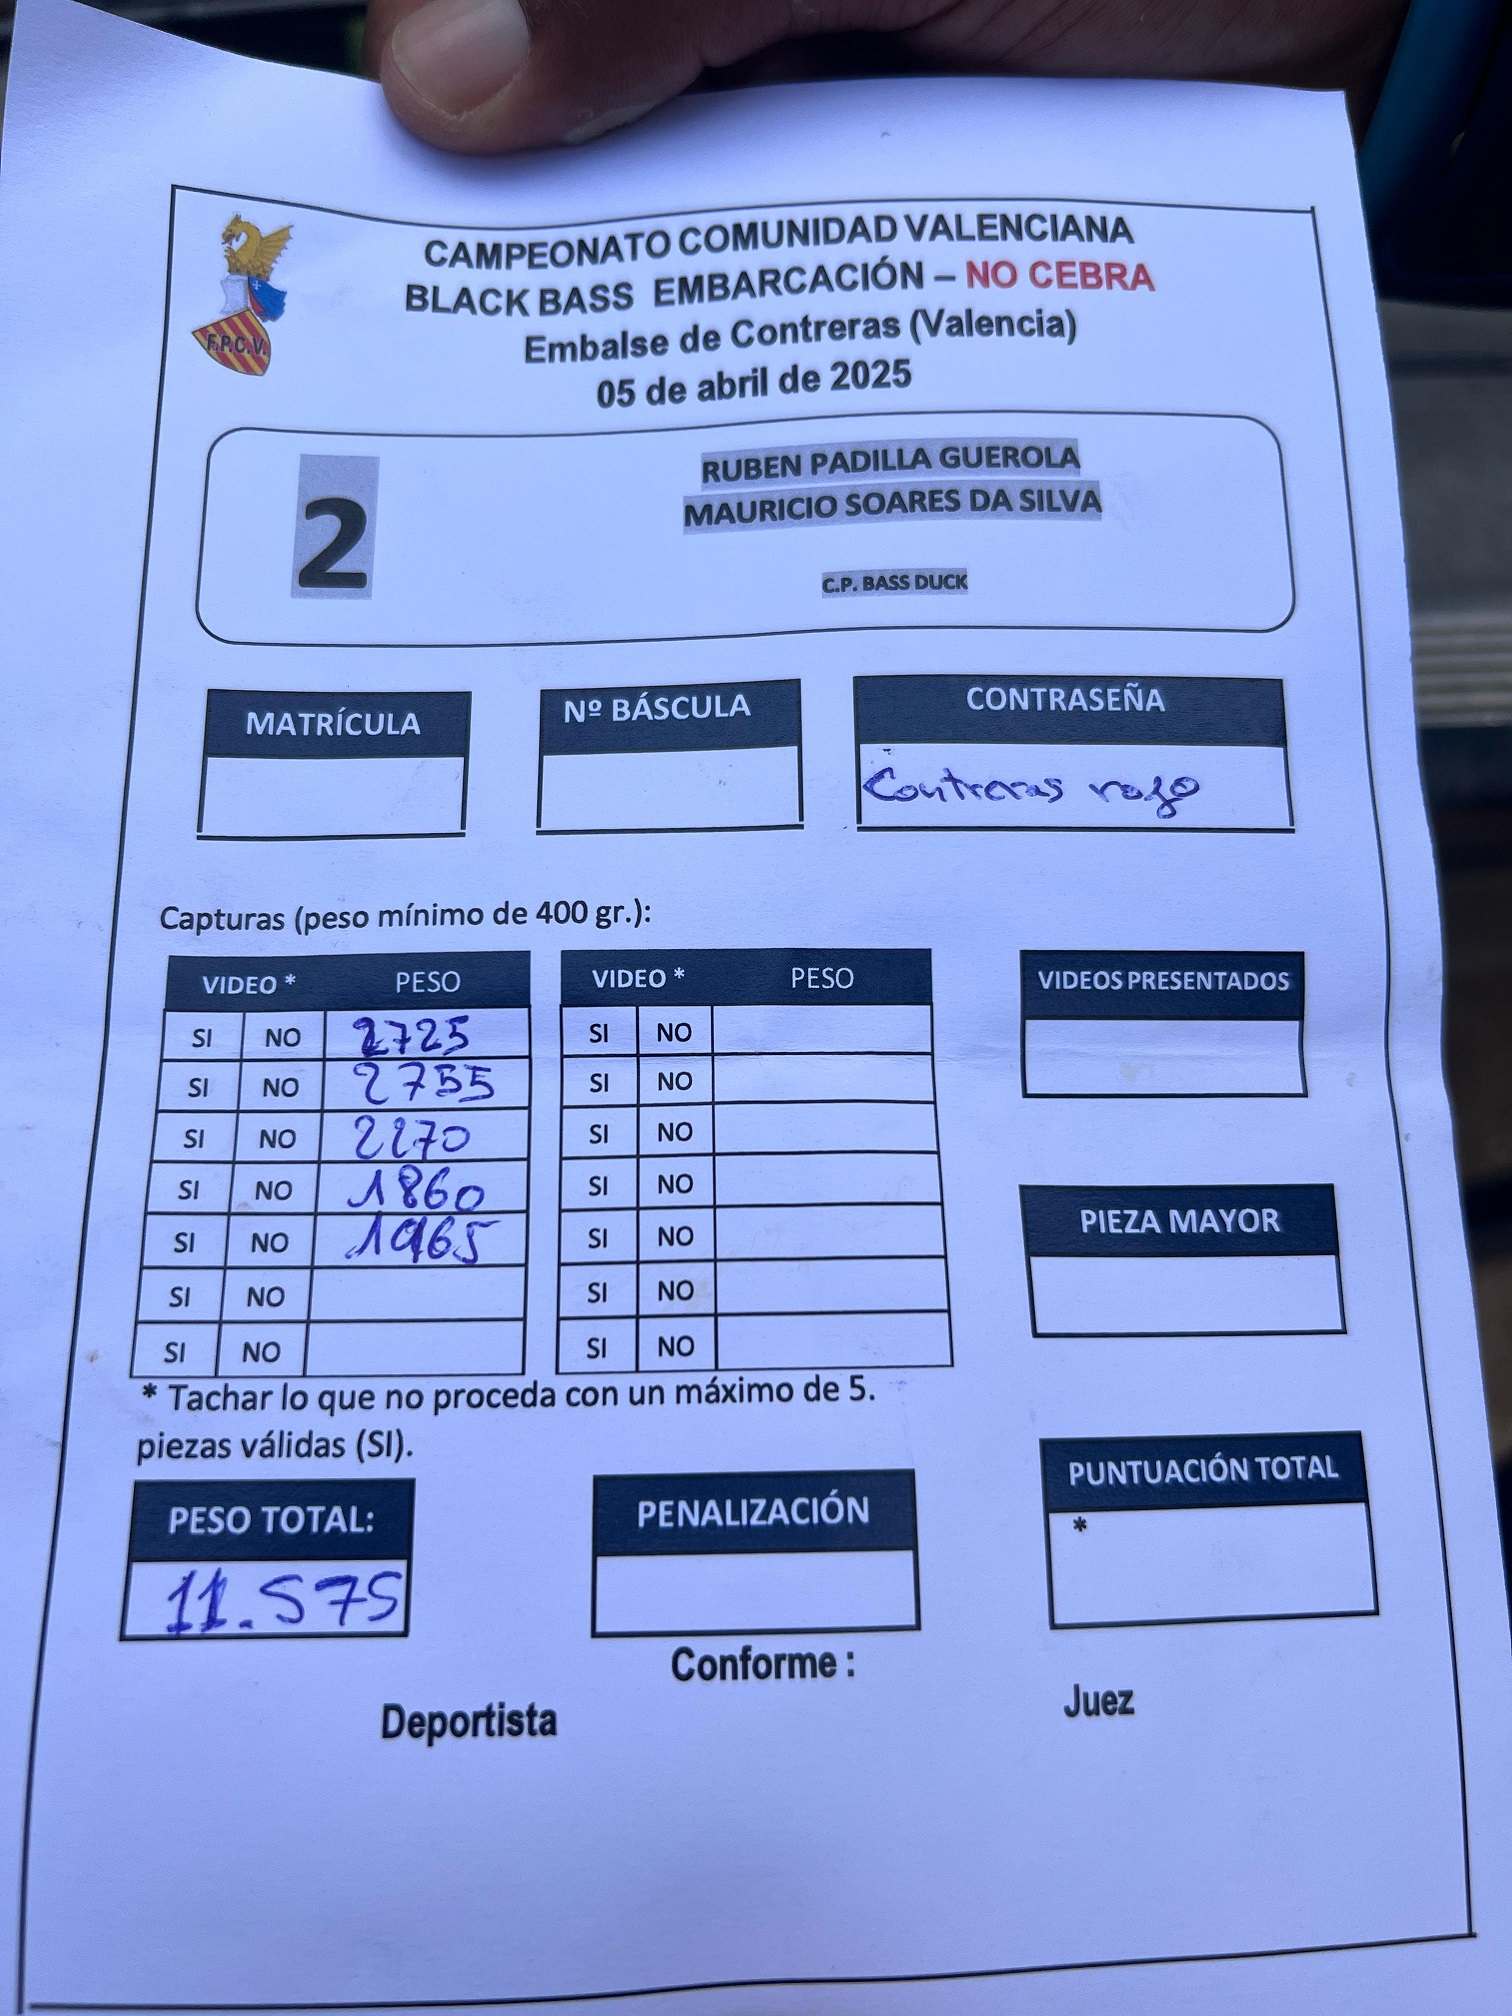 CAMPEONATO COMUNIDAD VALENCIANA
BLACK BASS EMBARCACIÓN – NO CEBRA
Embalse de Contreras (Valencia)
05 de abril de 2025
F.P.C.V.
2
RUBEN PADILLA GUEROLA
MAURICIO SOARES DA SILVA
C.P. BASS DUCK
MATRÍCULA Nº BÁSCULA CONTRASEÑA
Contreras rojo
Capturas (peso mínimo de 400 gr.):
VIDEO * PESO VIDEO * PESO VIDEOS PRESENTADOS
SI NO 2725 SI NO
SI NO 2755 SI NO
SI NO 2270 SI NO
SI NO 1860 SI NO
PIEZA MAYOR
SI NO 1965 SI NO
SI NO SI NO
SI NO SI NO
* Tachar lo que no proceda con un máximo de 5.
piezas válidas (SI).
PESO TOTAL: PENALIZACIÓN PUNTUACIÓN TOTAL
*
11.575
Conforme :
Deportista Juez